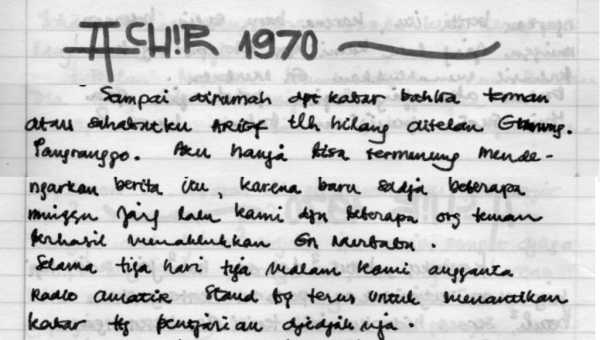 ACHIR 1970
Sampai dirumah dpt kabar bahwa teman
atau sahabatku ARIEF tlh hilang ditelan Gunung.
Pangranggo. Aku hanya bisa termenung mende-
ngarkan berita itu, karena baru sadja beberapa
minggu jang lalu kami dgn beberapa org teman
berhasil menaklukkan Gn Merbabu.
Selama tiga hari tiga malam kami anggauta
Radio amatir Stand by terus untuk menantikan
kabar ttg pentjarian djedjaknja.